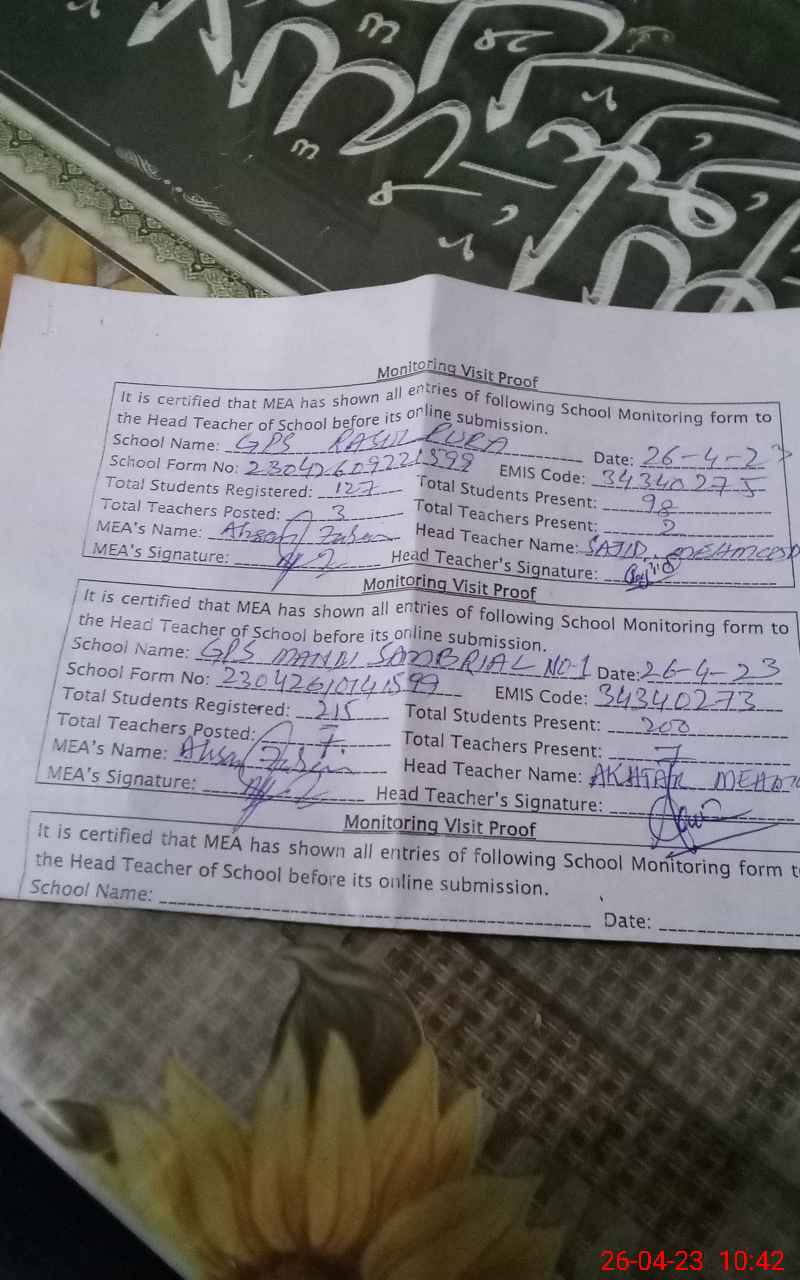 Monitoring Visit Proof
It is certified that MEA has shown all entries of following School Monitoring form to
the Head Teacher of School before its online submission.
School Name: GPS RASUL PURA Date: 26-4-23
School Form No: 23042609221599 EMIS Code: 34340275
Total Students Registered: 127 Total Students Present: 98
Total Teachers Posted: 3 Total Teachers Present: 2
MEA's Name: Ahsan Head Teacher Name: SAJID MEHMOOD
MEA's Signature: Head Teacher's Signature:
Monitoring Visit Proof
It is certified that MEA has shown all entries of following School Monitoring form to
the Head Teacher of School before its online submission.
School Name: GPS MAIN SAMBRIAL NO-1 Date: 26-4-23
School Form No: 23042610141599 EMIS Code: 34340273
Total Students Registered: 215 Total Students Present: 200
Total Teachers Posted: 7 Total Teachers Present: 7
MEA's Name: Ahsan Head Teacher Name: AKHTAR
MEA's Signature: Head Teacher's Signature:
Monitoring Visit Proof
It is certified that MEA has shown all entries of following School Monitoring form t
the Head Teacher of School before its online submission.
School Name: Date:
26-04-23 10:42